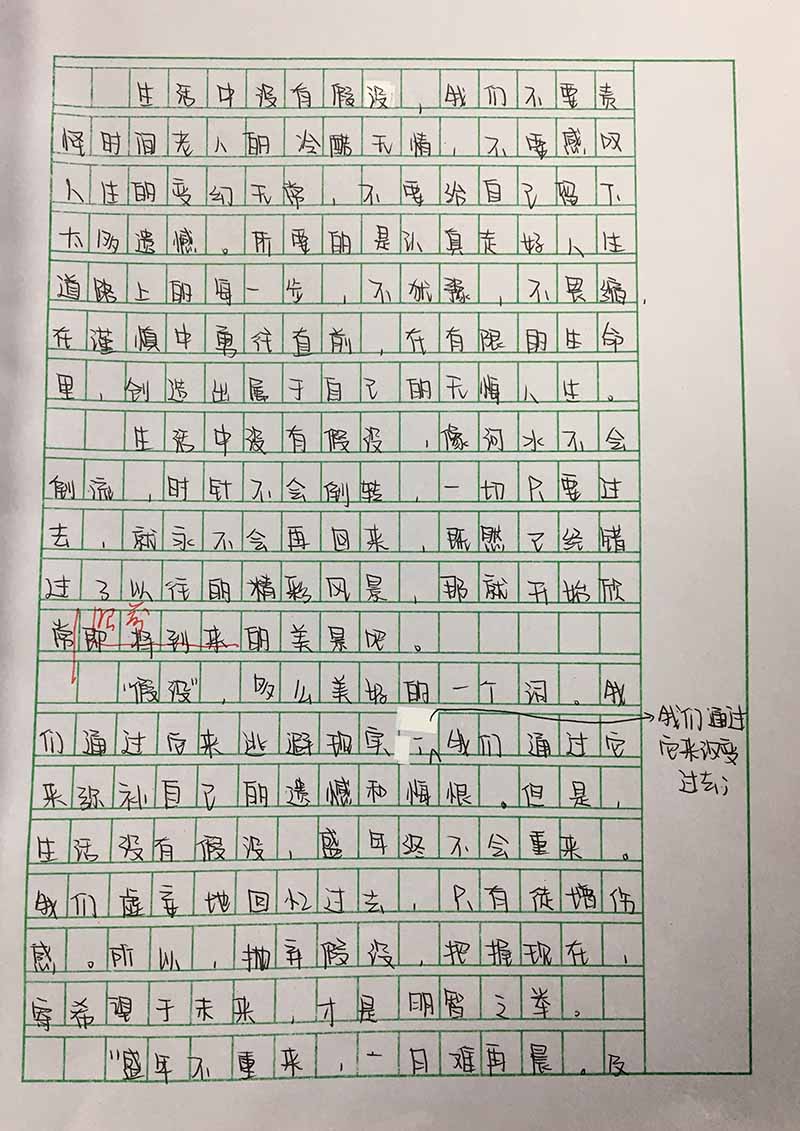 生活中没有假设，我们不要责
怪时间老人的冷酷无情，不要感叹
人生的变幻无常，不要给自己留下
太多遗憾。所要的是认真走好人生
道路上的每一步，不犹豫，不畏缩，
在谨慎中勇往直前，在有限的生命
里，创造出属于自己的无悔人生。
生活中没有假设，像河水不会
倒流，时针不会倒转，一切只要过
去，就永不会再回来，既然已经错
过了以往的精彩风景，那就开始欣
赏即将到来的美景吧。
“假设”，多么美好的一个词。我
们通过它来逃避现实；我们通过它
我们通过
它来改变
过去；
来弥补自己的遗憾和悔恨。但是，
生活没有假设，盛年终不会重来。
我们虚妄地回忆过去，只有徒增伤
感。所以，抛弃假设，把握现在，
寄希望于未来，才是明智之举。
“盛年不重来，一日难再晨。及